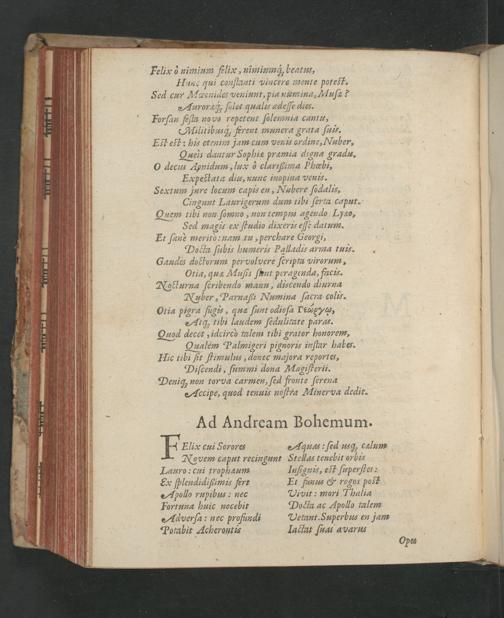 Felix ò nimium felix, nimiumq́, beatus,
Hunc qui constanti vincere mente potest.
Sed cur Mæonides veniunt, pia numina, Musæ?
Auroraq́, solet qualis adesse dies.
Forsan festa novo repetent solemnia cantu,
Militibusq́, ferent munera grata suis.
Est est: his etenim jam cum venis ordine, Nuber,
Queis dantur Sophiæ præmia digna gradu.
O decus Aonidum, lux ô clarißima Phœbi,
Expectata diu, nunc inopina venis.
Sextum jure locum capis en, Nubere sodalis,
Cingunt Laurigerum dum tibi serta caput.
Quem tibi non somno, non tempus agendo Lyæo,
Sed magis ex studio dixeris esse datum.
Et sanè merito: nam tu, perchare Georgi,
Docta subis humeris Palladis arma tuis.
Gaudes doctorum pervolvere scripta virorum,
Otia, quæ Musis sunt peragenda, facis.
Nocturna scribendo manu, discendo diurna
Nuber, Parnaßi Numina sacra colis.
Otia pigra fugis, quæ sunt odiosa Γεωργῳ,
Atq́, tibi laudem sedulitate paras.
Quod decet, idcircò talem tibi grator honorem,
Qualem Palmigeri pignoris instar habes.
Hic tibi sit stimulus, donec majora reportes,
Discendi, summi dona Magisterii.
Deniq́, non torva carmen, sed fronte serena
Accipe, quod tenuis nostra Minerva dedit.
Ad Andream Bohemum.
FElix cui Sorores
Novem caput recingunt
Lauro: cui trophæum
Ex splendidißimis fert
Apollo rupibus: nec
Fortuna huic nocebit
Adversa: nec profundi
Potabit Acherontis
Aquas: sed usq́, cælum
Stellas tenebit orbis
Insignis, est superstes:
Et funus & rogos post
Vivit: mori Thalia
Docta ac Apollo talem
Vetant. Superbus en jam
Iactat suas avarus
Opes